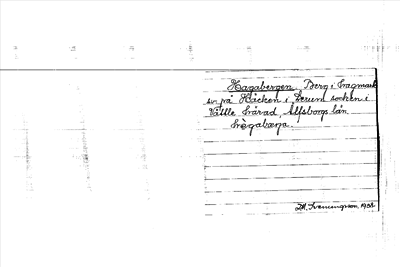 Hagabergen. Berg i Gragmark
sv på Häcken i Lerum socken i
Vättle härad, Älfsborgs län.
hàgabærja
M. Svenungsson, 1938